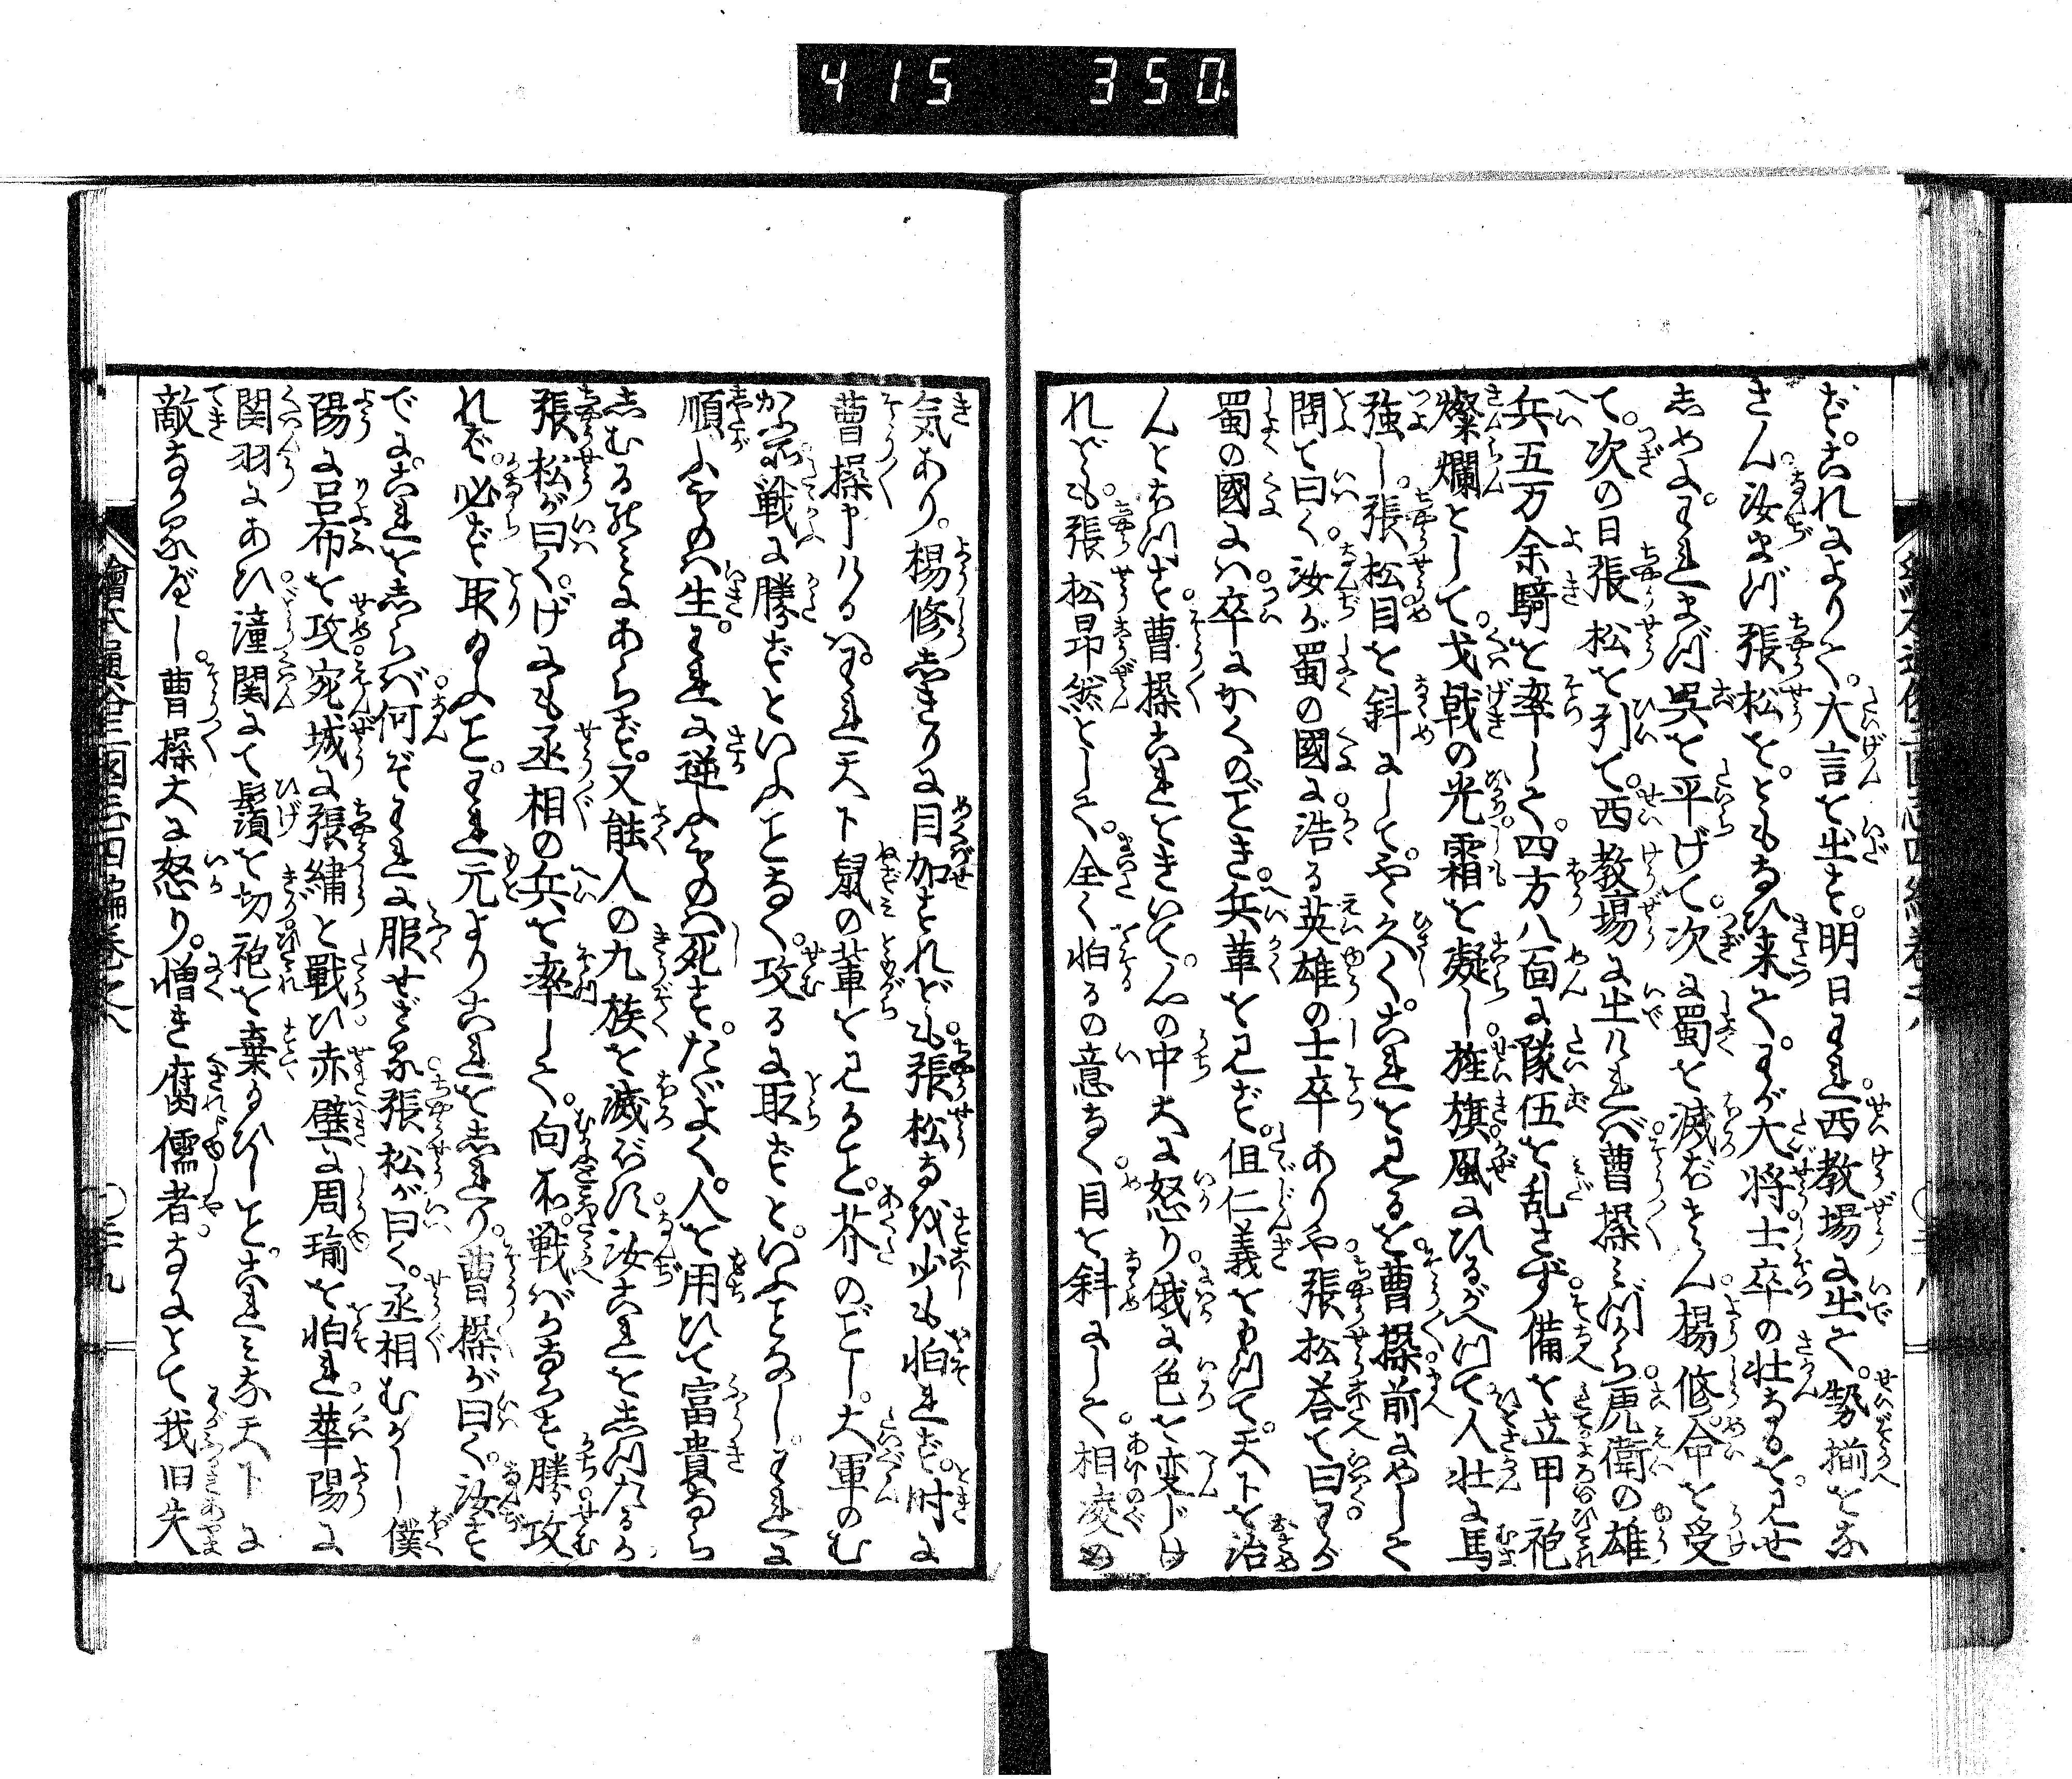 415 350
ず。これによりて。大言を出す。明日われ。西教場に出て。勢揃をな
さん。汝まづ張松を。ともなひ来て。わが大将士卒の壮なるを。見せ
しめよ。われまづ呉を平げて。次に蜀を滅ぼさん。楊修命を受
て。次の日張松を引て。西教場に出ければ。曹操みづから。虎衛の雄
兵五万余騎を率して。四方八面に隊伍を乱さず。備を立甲袍
燦爛として。戈戟の光霜を凝し。旌旗風にひるがへつて人壮に馬
強し。張松目を斜にして。やゝ久く。これを見るを。曹操前にめして
問て曰く。汝が蜀の國に。浩る英雄の士卒ありや。張松荅て曰わが
蜀の國には。卒にかくのごとき。兵革を見ず。但仁義をもつて。天下を治
んとおもつす。曹操これをきいて。心の中大に怒り。俄に色を変じけ
れども。張松昂然として。全く怕るの意なく。目を斜にして。相凌め
気あり。楊修しきりに目加すれども。張松なを少も怕れず。時に
曹操申けるは。われ天下鼠の輩を見ること。芥のごとし。大軍のむ
かふ所。戦に勝ずといふことなく。攻るに取ずと。いふことなし。われに
順ふものは生。われに逆ふものは死す。たゞよく。人を用ひて富貴なら
しむるのみにあらず。又能人の九族を滅ぼす。汝これをしつたるか。
張松が曰く。げにも丞相の兵を率して。向所。戦ばかならず勝攻
れば。必ず取ること。われ元よりこれをしれり。曹操が曰く。汝す
でに。これをしらば。何ぞわれに服せざる。張松が曰く。丞相むかし濮
陽に呂布を攻。宛城に張繡と戰ひ。赤壁に周瑜を怕れ。華陽に
関羽にあひ。潼関にて鬚を切。袍を棄給ひしこと。これみな天下に
敵なきゆゑなるべし。曹操大に怒り。憎き腐儒者。なにとて我旧失
繪本通俗三國志四編巻之八 〇三十八
繪本通俗三國志四編巻之八 〇三十九